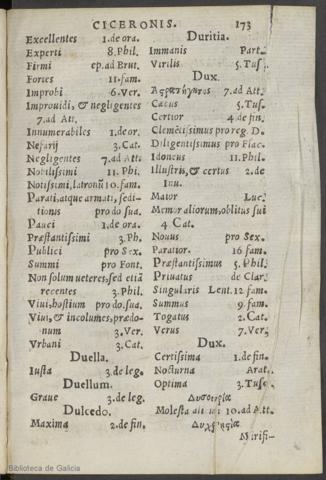 CICERONIS. 173
Excellentes 1.de ora.
Experti 8.Phil.
Firmi ep.ad Brut.
Fortes 11.fam.
Improbi 6.Ver.
Improuidi, & negligentes
7.ad Att.
Innumerabiles 1.de or.
Nefarij 3.Cat.
Negligentes 7.ad Att.
Nobilissimi 11. Phi.
Notissimi, latronū 10.fam.
Parati, atque armati, sedi-
tionus pro do.sua.
Pauci 1.de ora.
Præstantissimi 3.Ph.
Publici pro Sex.
Summi pro Font.
Non solum ueteres, sed etiā
recentes 3.Phil.
Viui, hostium pro do.sua.
Viui, & incolumes, prædo-
num 3.Ver.
Vrbani 3.Cat.
Duella.
Iusta 3.de leg.
Duellum.
Graue 3.de leg.
Dulcedo.
Maxima 2.de fin.
Duritia.
Immanis Part.
Virilis 5.Tus.
Dux.
7.ad Att.
Cæcus 5.Tus.
Certior 4.de fin.
Clemētissimus pro reg. D.
Diligentissimus pro Flac.
Idoneus 11.Phil.
Illustris, & certus 2.de
Inu.
Maior Luc.
Memor aliorum, oblitus sui
4 Cat.
Nouus pro Sex.
Paratior. 16 fam.
Præstantissimus 5.Phil.
Priuatus de Clar.
Singularis Lent. 12.fam.
Summus 9.fam.
Togatus 2.Cat.
Verus 7.Ver.
Dux.
Certissima 1.de fin.
Nocturna Arat.
Optima 3.Tus.
Molesta 10.ad Att.
Mirifi-
Biblioteca de Galicia